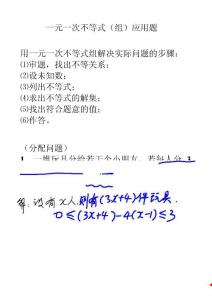 一元一次不等式（组）应用题
用一元一次不等式组解决实际问题的步骤:
(1)审题，找出不等关系;
(2)设未知数;
(3)列出不等式;
(4)求出不等式的解集;
(5)找出符合题意的值;
(6)作答。
(分配问题)
1. 一堆玩具分给若干个小朋友，若每人分 3
解: 设有x人, 则有(3x+4)件玩具.
0≤(3x+4)-4(x-1)≤3